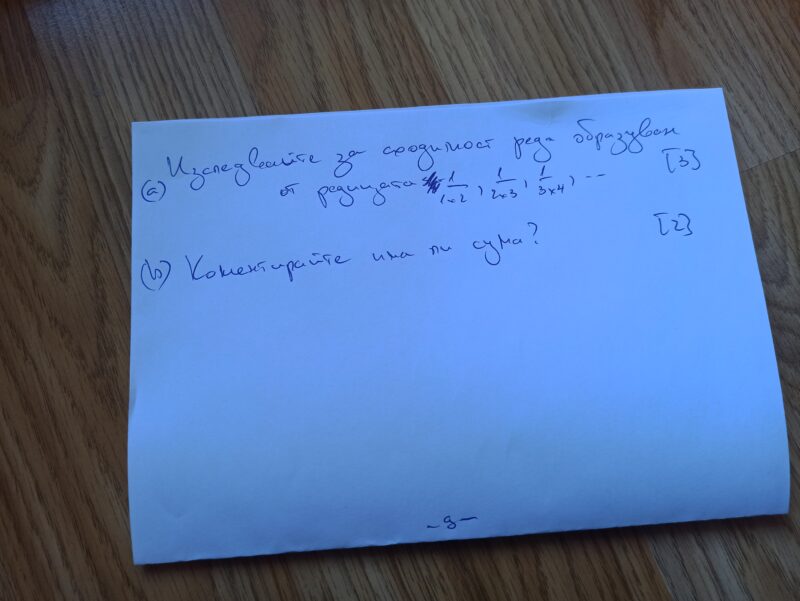 (a) Изследвайте за сходимост реда образуван
от редицата 1/1×2, 1/2×3, 1/3×4, ... [3]
(b) Коментирайте има ли сума? [2]
-9-